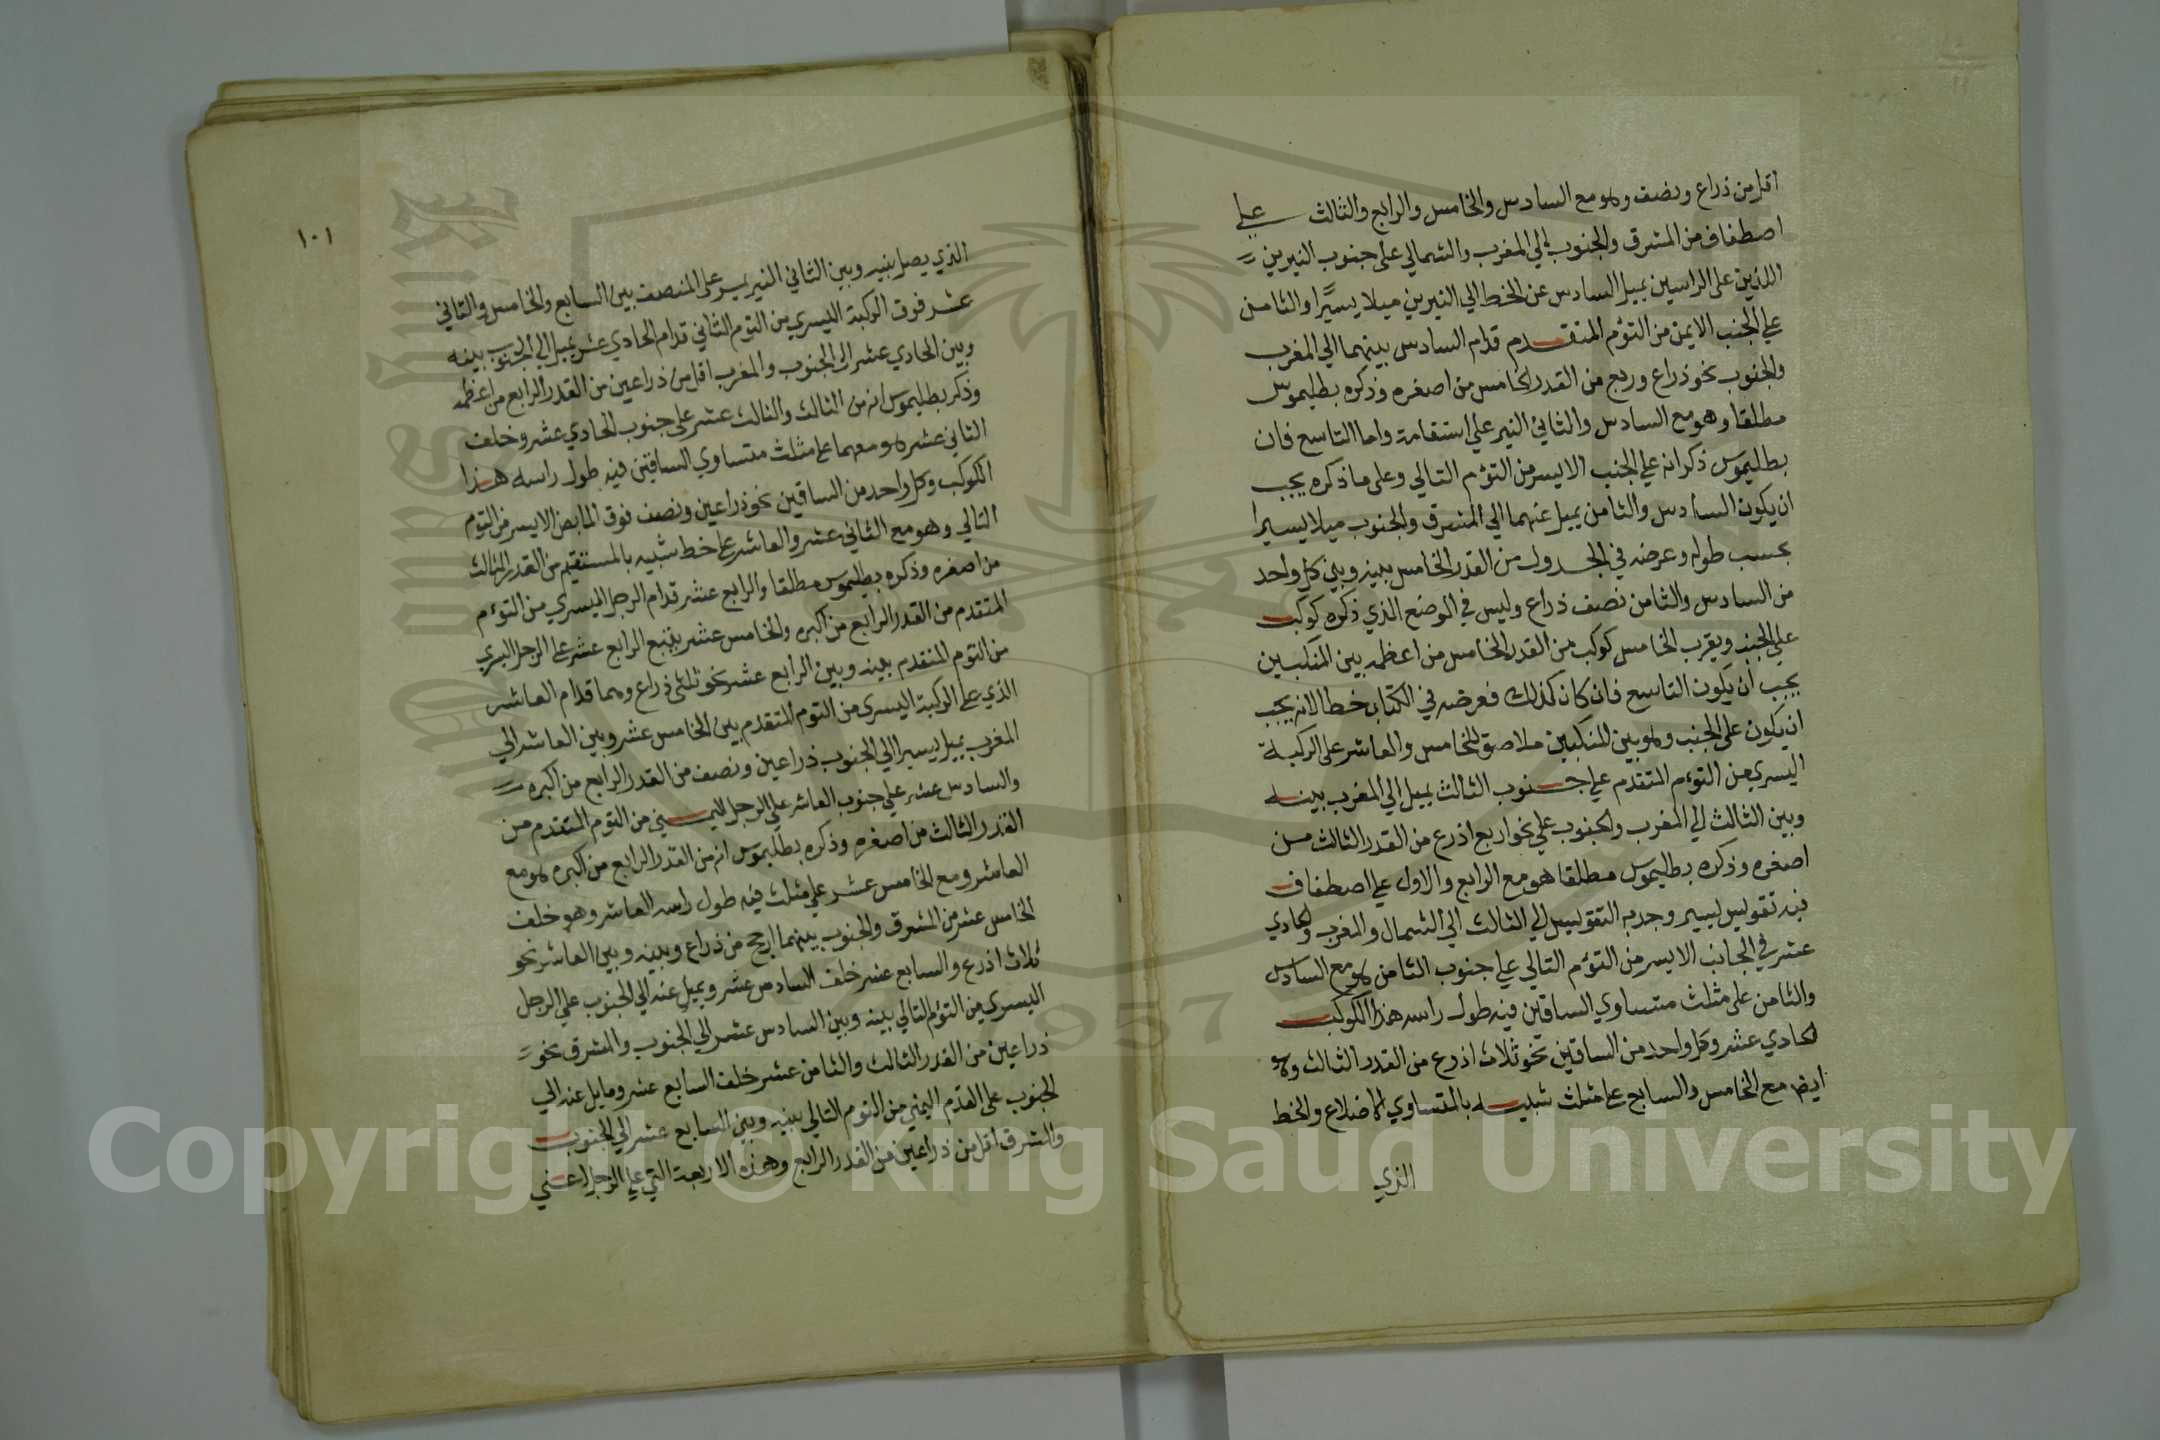 اقل من ذراع ونصف وهو مع السادس والخامس والرابع والثالث على
اصطفاف من المشرق والجنوب الي المغرب والشمالي على جنوب النيرين
اللذين على الراسين يميل السادس عن الخط الي النيرين ميلا يسيرًا والثامن
علي الجنب الايمن من التوءم المتقدم قدام السادس بينهما الي المغرب
والجنوب نحو ذراع وربع من القدر الخامس من اصغره وذكره بطليموس
مطلقا وهو مع السادس والثاني النير علي استقامة واما التاسع فان
بطليموس ذكر انه علي الجنب الايسر من التوءم التالي وعلى ما ذكره يجب
ان يكون السادس والثامن يميل عنهما الي المشرق والجنوب ميلا يسيرا
بحسب طوله وعرضه في الجدول من القدر الخامس بينه وبين كل واحد
من السادس والثامن نصف ذراع وليس في الموضع الذي ذكره كوكب
علي الجنب ويقرب الخامس كوكب من القدر الخامس من اعظمه بين المنكبين
يجب ان يكون التاسع فان كان كذلك فعرضه في الكتاب خطا لانه يجب
ان يكون على الجنب وهو بين المنكبين ملاصق للخامس والعاشر على الركبة
اليسري من التوءم المتقدم علي جنوب الثالث يميل الي المغرب بينه
وبين الثالث الي المغرب والجنوب علي نحو اربع اذرع من القدر الثالث من
اصغره وذكره بطليموس مطلقا هو مع الرابع والاول علي اصطفاف
فيه تقويس يسير وحدبه التقويس الي الثالث الي الشمال والمغرب والحادي
عشر في الجانب الايسر من التوءم التالي علي جنوب الثامن هو مع السادس
والثامن على مثلث متساوي الساقين فيه طول راسه هذا الكوكب
الحادي عشر وكل واحد من الساقين نحو ثلاث اذرع من القدر الثالث وهو
ايضا مع الخامس والسابع على مثلث شبيه بالمتساوي الاضلاع والخط
الذي
١٠١
الذي يصل بينه وبين الثاني النير يمر على المنصف بين السابع والخامس والثاني
عشر فوق الركبة اليسري من التوءم الثاني قدام الحادي عشر يميل الي الجنوب بينه
وبين الحادي عشر الى الجنوب والمغرب اقل من ذراعين من القدر الرابع من اعظمه
وذكر بطليموس انه من الثالث والثالث عشر على جنوب الحادي عشر وخلف
الثاني عشر هو معهما على مثلث متساوي الساقين فيه طول راسه هذا
الكوكب وكل واحد من الساقين نحو ذراعين ونصف فوق المابض الايسر من التوءم
التالي وهو مع الثاني عشر والعاشر على خط شبيه بالمستقيم من القدر الثالث
من اصغره وذكره بطليموس مطلقا والرابع عشر قدام الرجل اليسري من التوءم
المتقدم من القدر الرابع من اكبره والخامس عشر يتبع الرابع عشر على الرجل اليسري
من التوءم المتقدم بينه وبين الرابع عشر نحو ثلثى ذراع وهما قدام العاشر
الذي على الركبة اليسرى من التوءم المتقدم بين الخامس عشر وبين العاشر الي
المغرب يميل يسيرا الي الجنوب ذراعين ونصف من القدر الرابع من اكبره
والسادس عشر علي جنوب العاشر علي الرجل اليمني من التوءم المتقدم من
القدر الثالث من اصغره وذكره بطليموس انه من القدر الرابع من اكبره هو مع
العاشر ومع الخامس عشر علي مثلث فيه طول راسه العاشر وهو خلف
الخامس عشر من المشرق والجنوب بينهما ارجح من ذراع وبينه وبين العاشر نحو
ثلاث اذرع والسابع عشر خلف السادس عشر ويميل عنه الي الجنوب علي الرجل
اليسري من التوءم التالي بينه وبين السادس عشر الي الجنوب والمشرق نحو
ذراعين من القدر الثالث والثامن عشر خلف السابع عشر ومايل عنه الي
الجنوب على القدم اليمني من التوءم التالي بينه وبين السابع عشر الي الجنوب
والشرق اقل من ذراعين من القدر الرابع وهذه الاربعة التي علي الرجل اعني
Copyright © King Saud University
1957